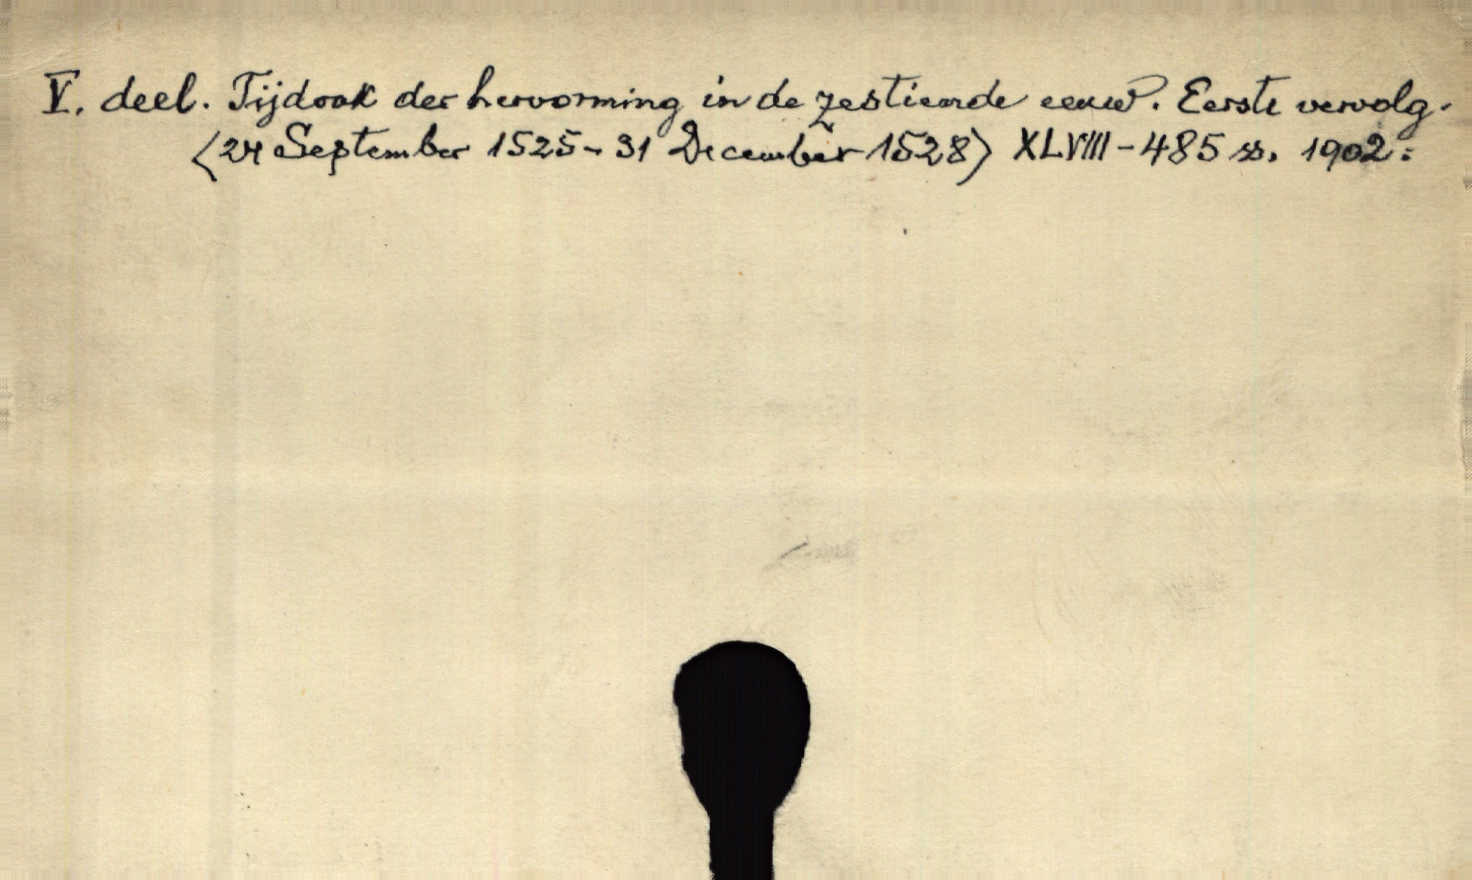 V. deel. Tijdvak der hervorming in de zestiende eeuw. Eerste vervolg.
<24 September 1525 - 31 December 1528> XLVIII - 485 ss. 1902.